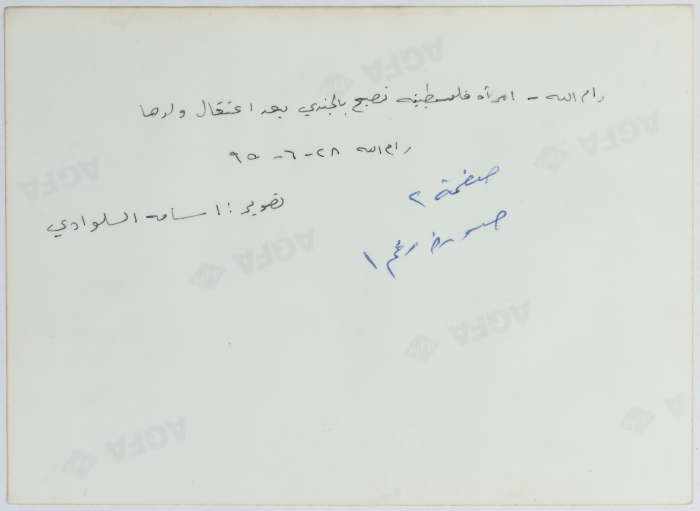 رام الله - امرأة فلسطينيه تصيح بالجندي بعد اعتقال ولدها
رام الله ٢٨-٦-٩٥
تصوير: اسامه السلوادي
صفحة ٢
صورة رقم ١
AGFA
AGFA
AGFA
AGFA
AGFA
AGFA